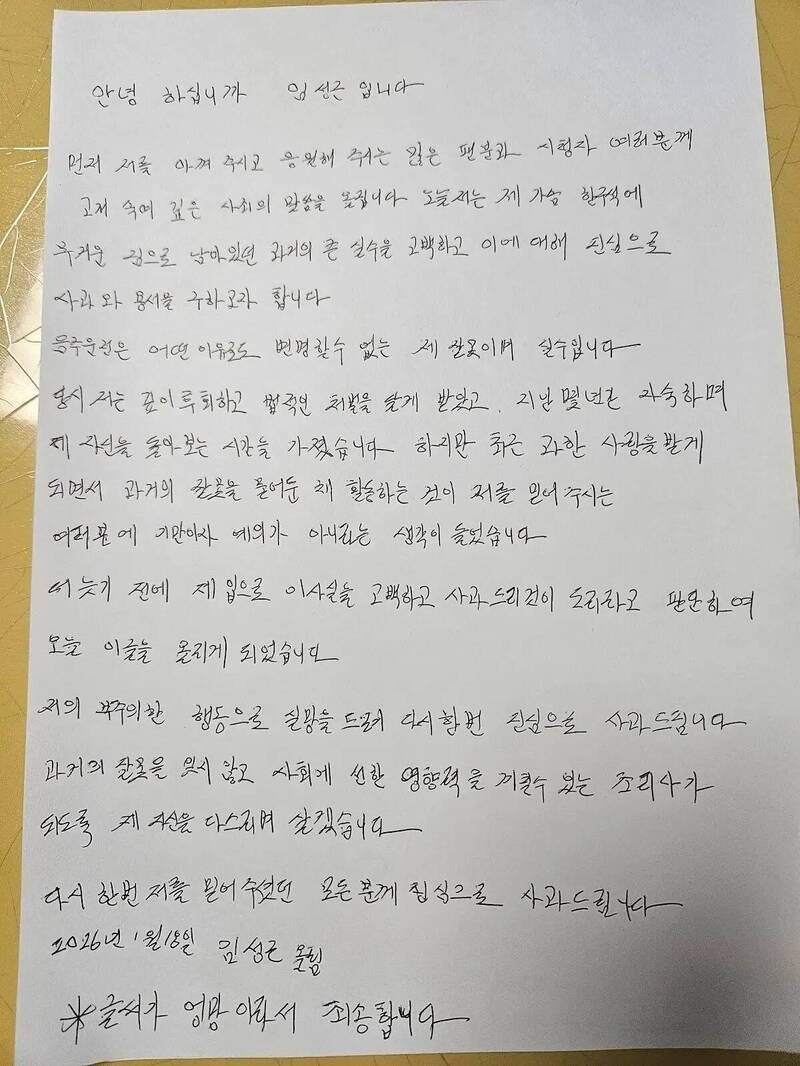 안녕 하십니까 임성근입니다
먼저 저를 아껴 주시고 응원해 주시는 많은 팬분과 시청자 여러분께
고개 숙여 깊은 사죄의 말씀을 올립니다 오늘저는 제 가슴 한구석에
무거운 짐으로 남아있던 과거의 큰 실수을 고백하고 이에 대해 진심으로
사과와 용서를 구하고자 합니다
음주운전은 어떤 이유로도 변명할수 없는 제 잘못이며 실수입니다
당시 저는 깊이 후회하고 법적인 처벌을 달게 받았고. 지난 몇년간 자숙하며
제 자신을 돌아보는 시간들 가졌습니다 하지만 최근 과한 사랑을 받게
되면서 과거의 잘못을 묻어둔 채 활동하는 것이 저를 믿어 주시는
여러분에 기만이자 예의가 아니라는 생각이 들었습니다
더 늦기 전에 제 입으로 이사실들 고백하고 사과드리것이 도리라고 판단하여
오늘 이글을 올리게 되었습니다
저의 부주의한 행동으로 실망을 드려 다시한번 진심으로 사과드립니다
과거의 잘못을 잊지 않고 사회에 선한 영향력을 끼칠수 있는 조리사가
되도록 제 자신을 다스리며 살겠습니다
다시 한번 저를 믿어 주셨던 모든분께 진심으로 사과드립니다
2026년 1월 18일 임성근 올림
※글씨가 엉망이라서 죄송합니다